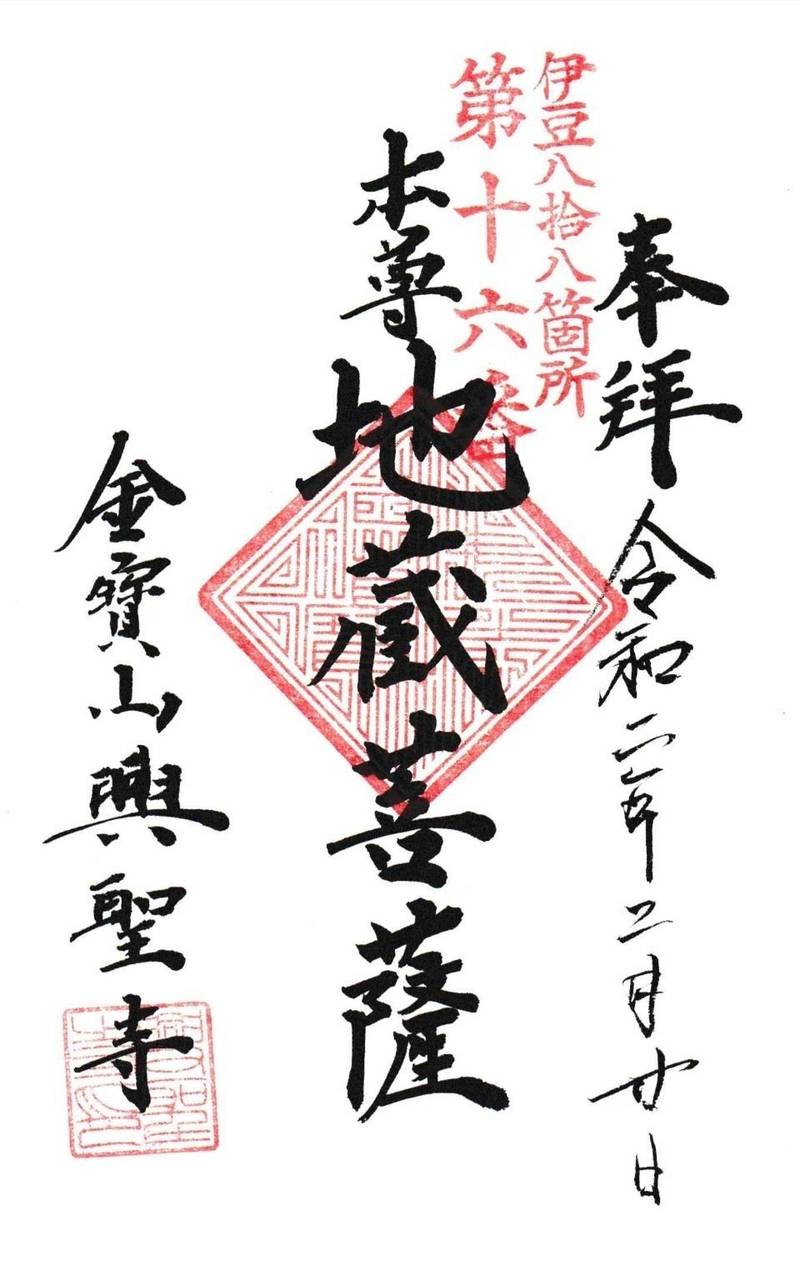 奉拝 令和二年二月廿日
伊豆八拾八箇所
第十六番
本尊 地蔵菩薩
金寶山興聖寺